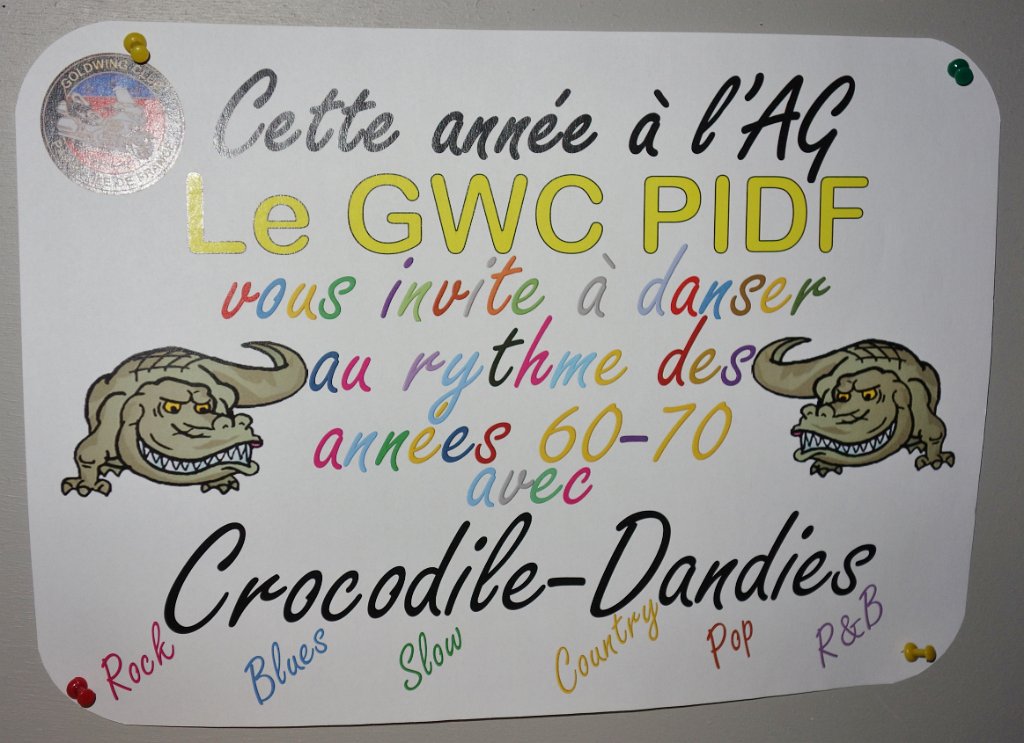 GOLDWING CLUB
Cette année à l'AG
Le GWC PIDF
vous invite à danser
au rythme des
années 60-70
avec
Crocodile-Dandies
Rock Blues Slow Country Pop R&B